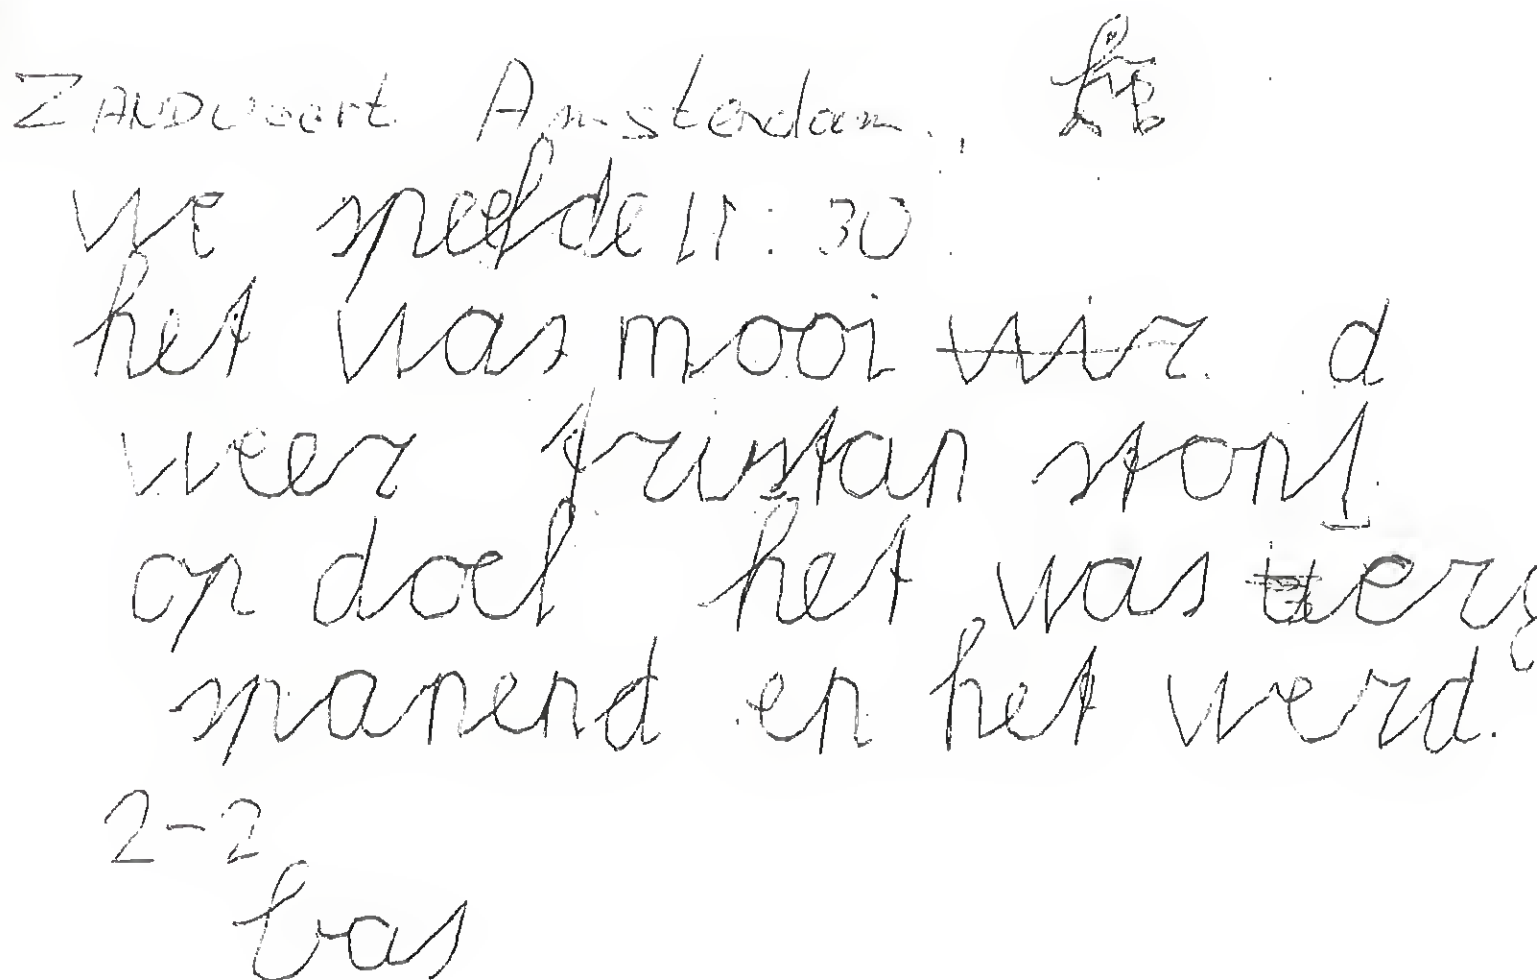 ZANDVoort Amsterdam.
we speelde 11:30
het was mooi
weer tristan stont
op doel het was erg
spanend en het werd.
2-2
bas